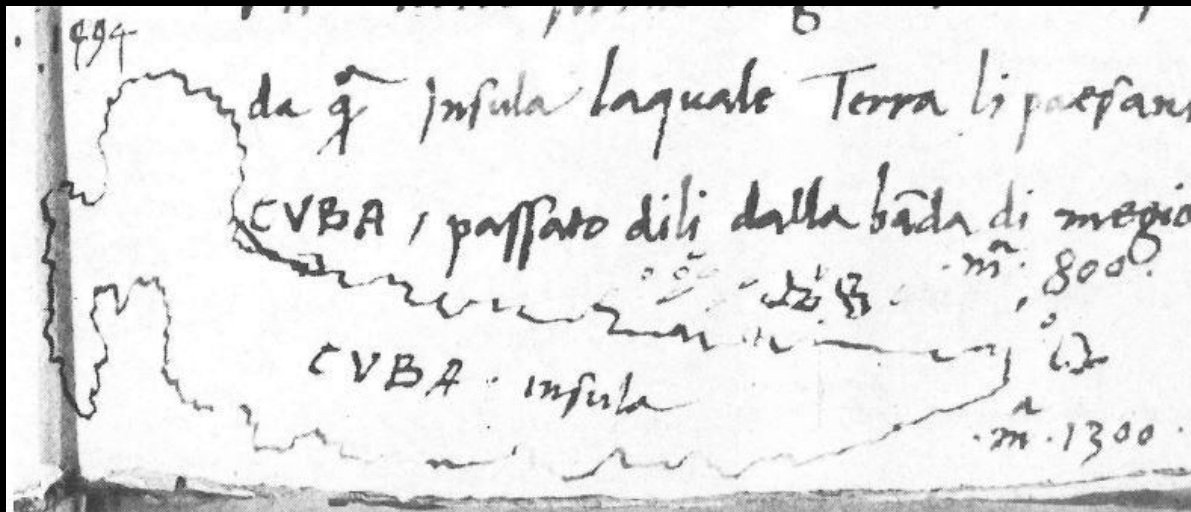 494
da q̃ Insula laquale Terra li paesani
CVBA, passato dili dalla bãda di megio
.m̃. 800.
CVBA. insula
.m̃. 1300.